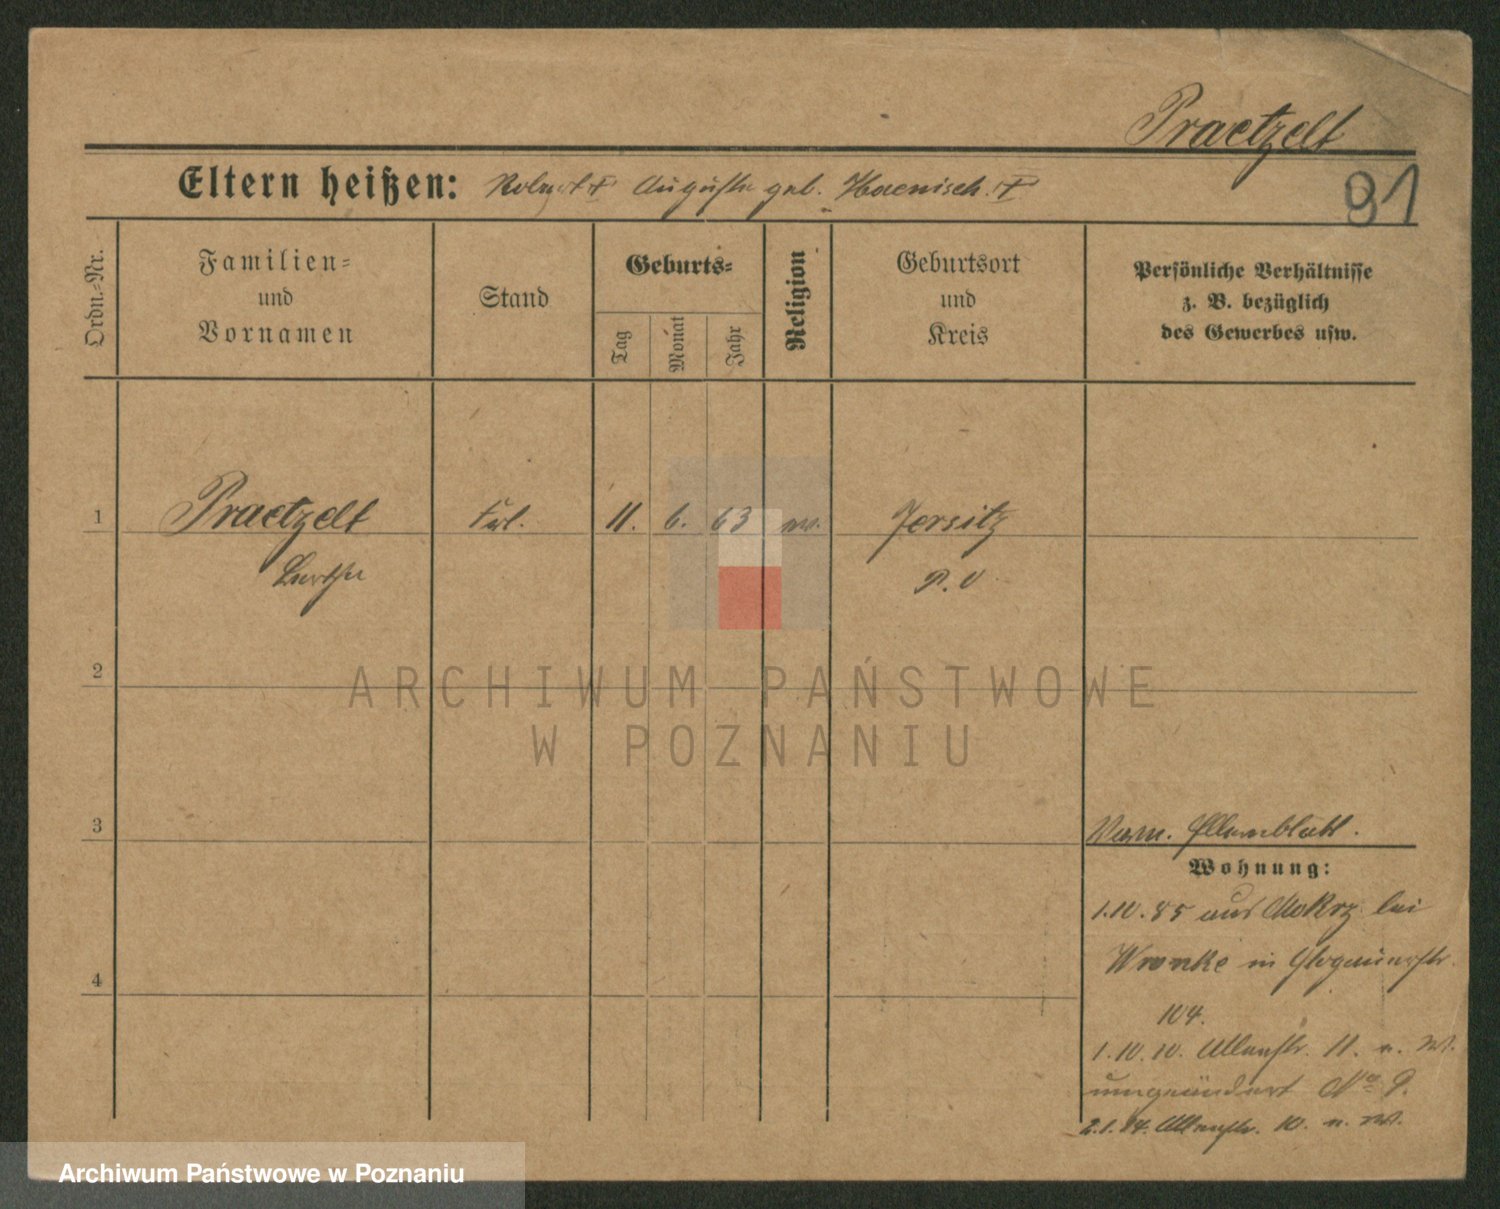 Praetzelt
Eltern heißen: Robert † Auguste geb. Haenisch. †
91
Ordn.-Nr.
Familien-
und
Vornamen
Stand
Geburts-
Tag
Monat
Jahr
Religion
Geburtsort
und
Kreis
Persönliche Verhältnisse
z. B. bezüglich
des Gewerbes usw.
1 Praetzelt Frl. 11. 6. 63 Jersitz
P. O
2
3
4
ARCHIWUM PAŃSTWOWE
W POZNANIU
Wohnung:
1.10.85 aus Mokrz bei
Wronke in Glogauerstr.
104.
1.10.10. 11.
umgeändert No 9.
2.1.14. 10.
Archiwum Państwowe w Poznaniu